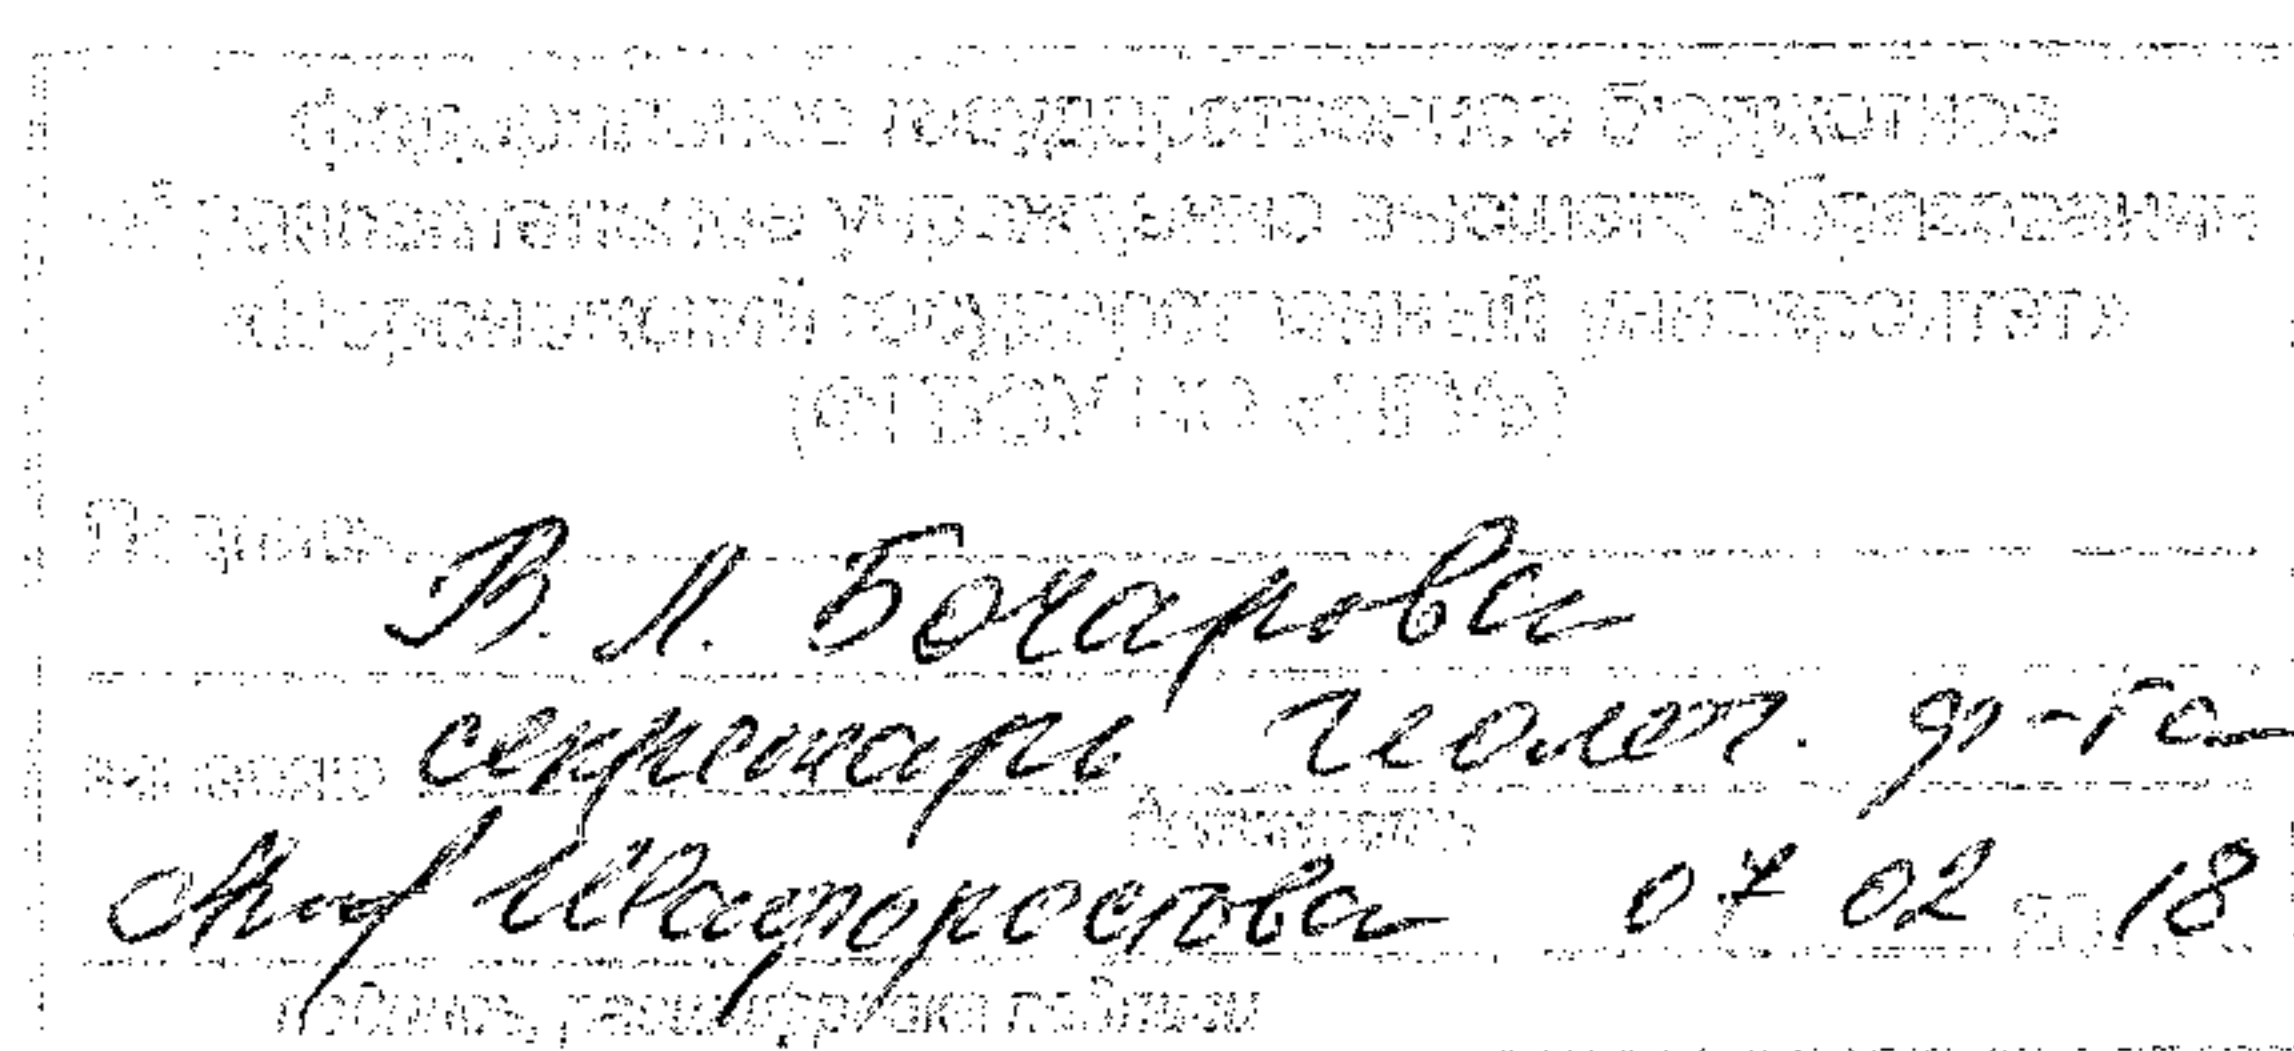 Федеральное государственное бюджетное
образовательное учреждение высшего образования
«Воронежский государственный университет»
(ФГБОУ ВО «ВГУ»)
Подпись В. Л. Бочарова
заверяю секретарь геолог. ф-та
должность
07 02 20 18
подпись, расшифровка подписи